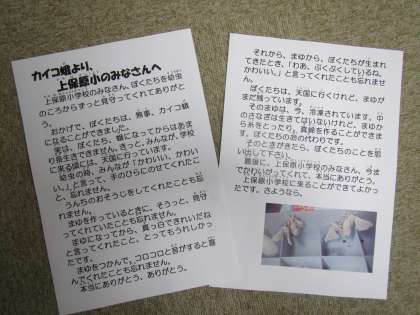 カイコ蛾より、
上保原小のみなさんへ
上保原小学校のみなさん、ぼくたちを幼虫
のころからずっと見守ってくれてありがと
う。
おかげで、ぼくたちは、無事、カイコ蛾
になることができました。
実は、ぼくたち、蛾になってからはあま
り長生きできません。きっと、みんなが、学校
に来る頃には、天国に行っています。
幼虫の時、みんなが「かわいい、かわい
い。」と言って、手のひらにのせてくれたこ
と、忘れません。
うんちのおそうじをしてくれたことも忘
れません。
まゆを作っているときに、そうっと、見守
ってくれていたことも忘れません。
まゆになってから、真っ白できれいだね
と言ってくれたこと、とってもうれしかっ
たです。
まゆをつかんで、コロコロと音がすると喜
んでくれたことも忘れません。
本当にありがとう、ありがとう。
それから、まゆから、ぼくたちが生まれ
てきたとき、「わあ、ぷくぷくしているね、
かわいい。」と言ってくれたことも忘れませ
ん。
ぼくたちは、天国に行くけれど、まゆが
まだ残っています。
そのまゆは、今、冷凍されています。中
のさなぎは生きてはいないけれど、まゆか
ら糸をとったり、真綿を作ることができま
す。ぼくたちの命の代わりです。
そのときがきたら、ぼくたちのことを思
い出して下さい。
最後に、上保原小学校のみなさん、今ま
でかわいがってくれて、本当にありがとう。
上保原小学校に来ることができてよかっ
たです。さようなら。